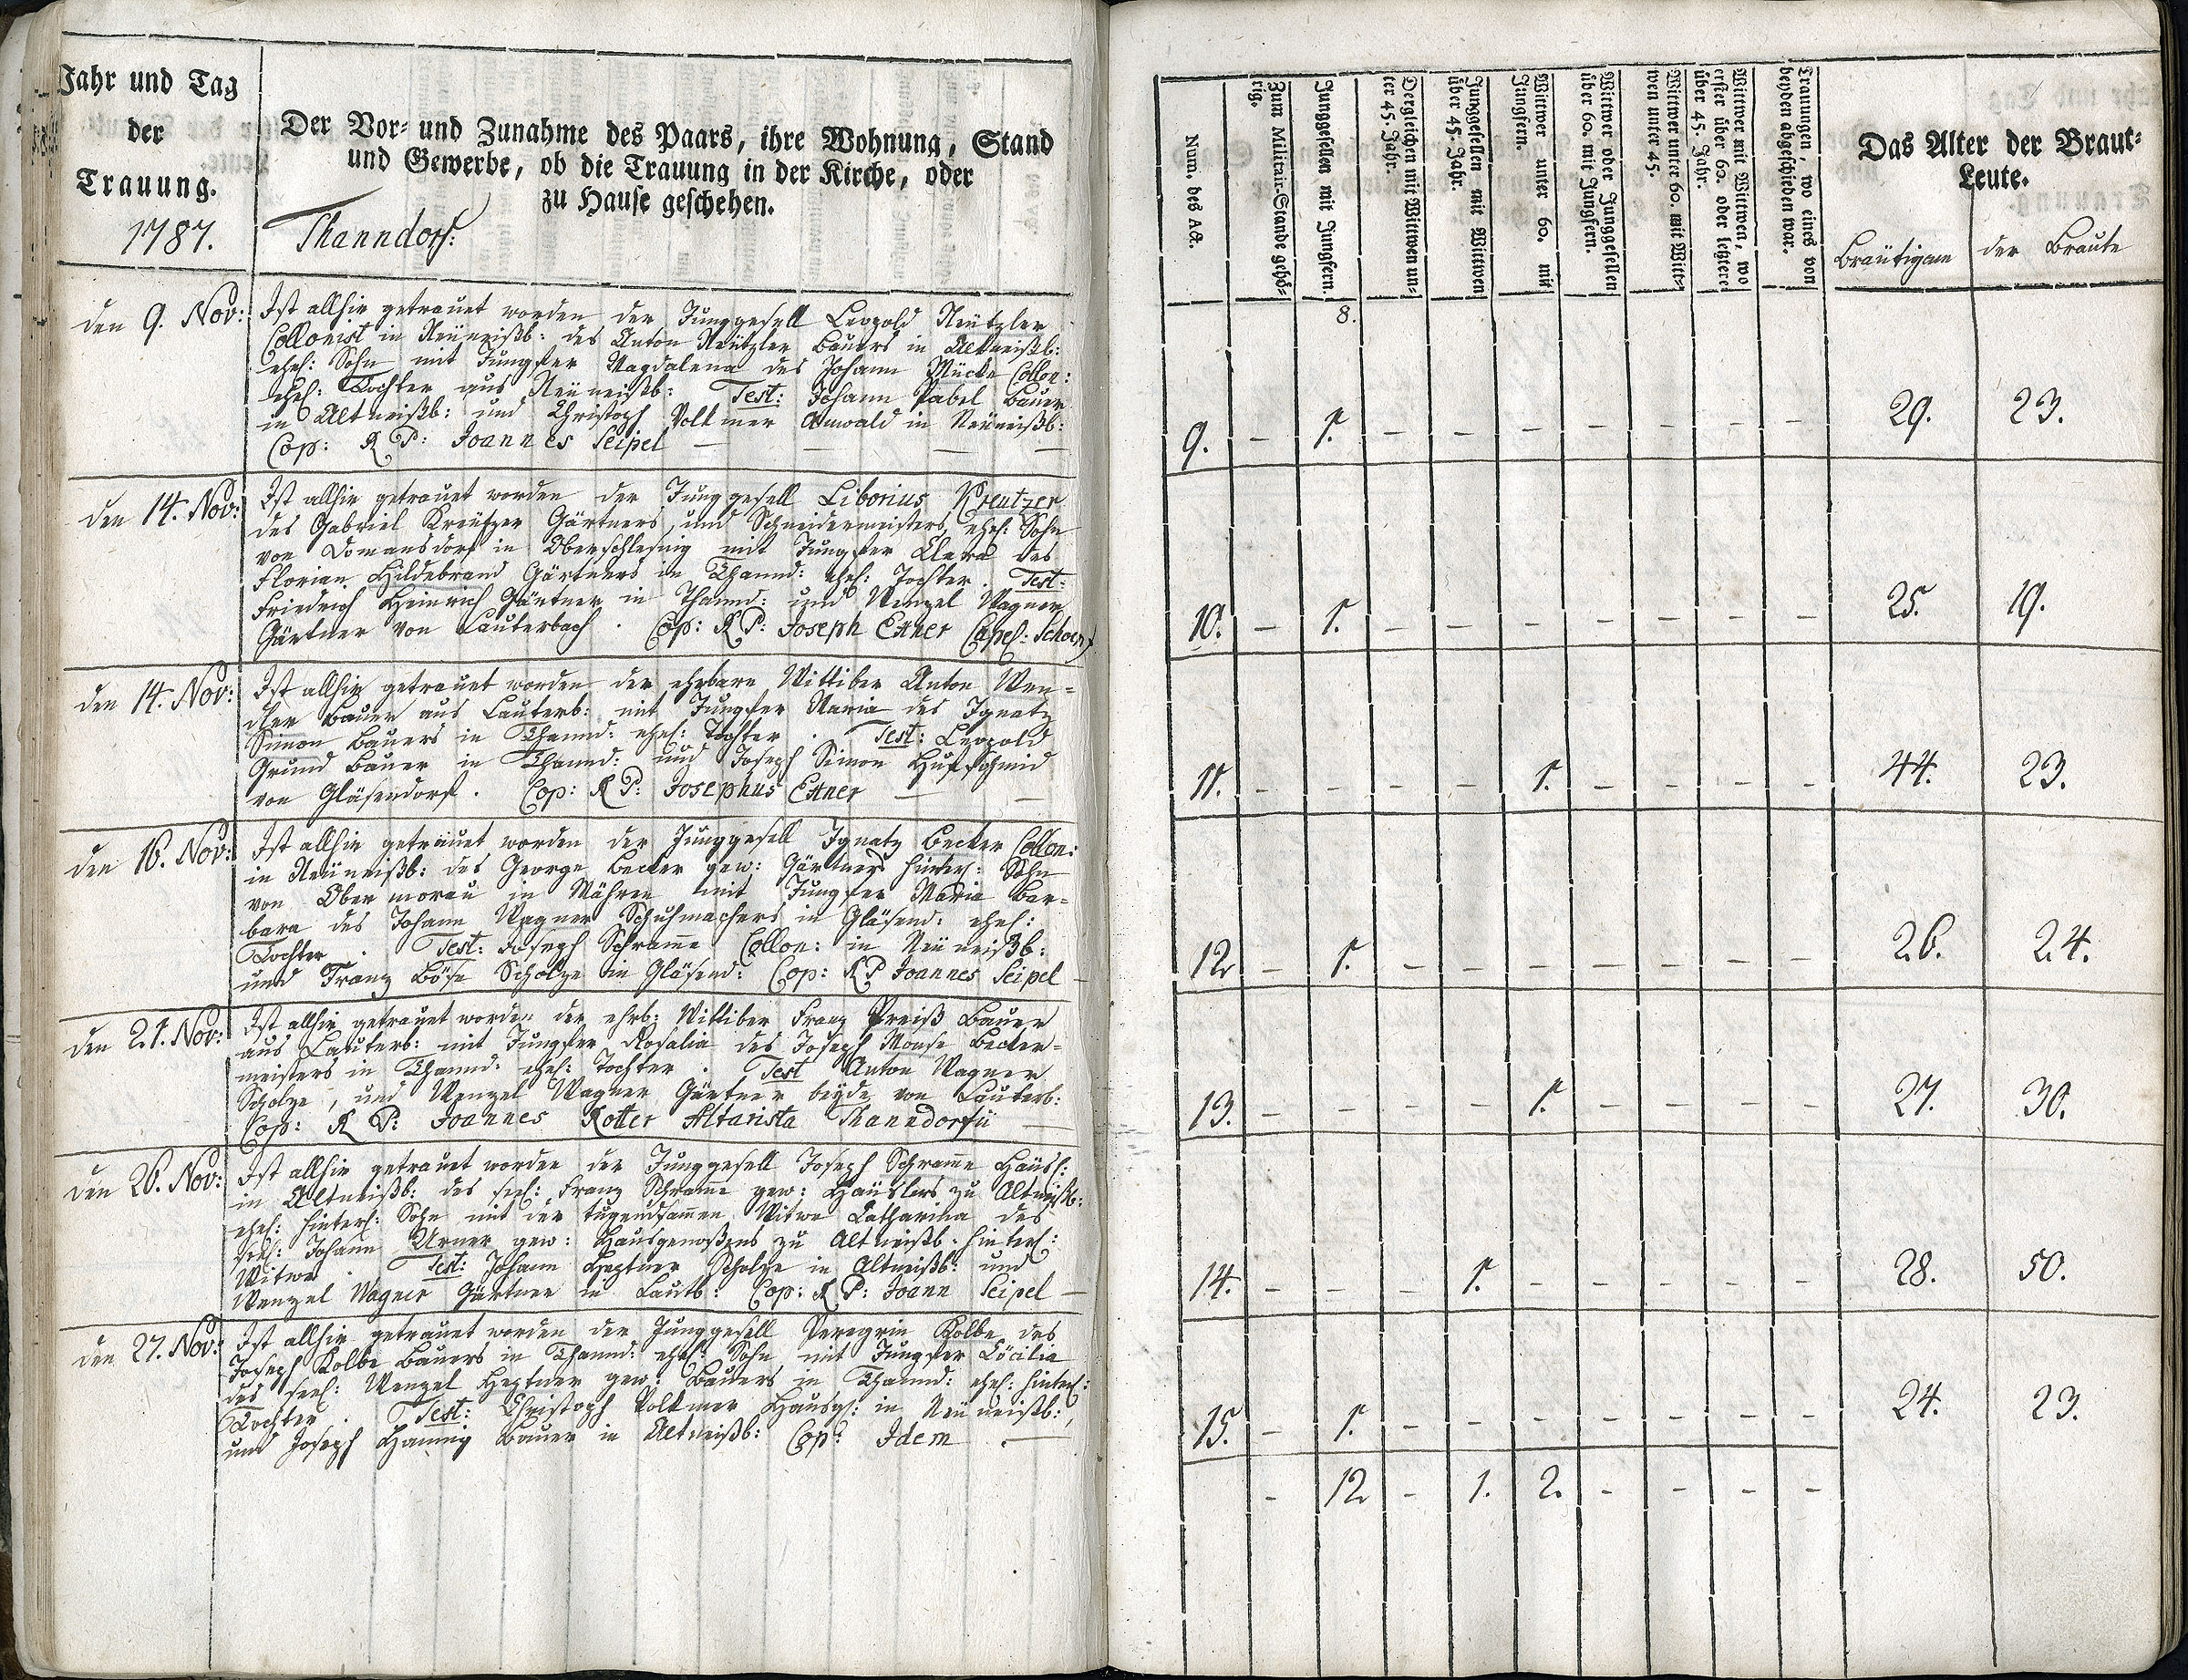 Jahr und Tag
der
Trauung.
1787.
Der Vor- und Zunahme des Paars, ihre Wohnung, Stand
und Gewerbe, ob die Trauung in der Kirche, oder
zu Hause geschehen.
Thanndorf:
den 9. Nov:
Ist allhie getrauet worden der Junggesell Leopold Neutzler
Collonist in Neuneißb: des Anton Neutzler Bauers in Altneißb:
ehel: Sohn mit Jungfer Magdalena des Johann Mücke Collon:
ehel: Tochter aus Neuneißb: Test: Johann Pabel Bauer
in Altneißb: und Christoph Volkmer Anwald in Neuneißb:
Cop: R P: Joannes Seipel —
den 14. Nov:
Ist allhie getrauet worden der Junggesell Liborius Kreutzer
des Gabriel Kreutzer Gärtners und Schneidermeisters ehel: Sohn
von Domansdorf in Oberschlesing mit Jungfer Clara des
Florian Hildebrand Gärtners in Thannd: ehel: Tochter. Test:
Friedrich Heinrich Gärtner in Thannd: und Wenzel Wagner
Gärtner von Lauterbach. Cop: R P: Joseph Exner Capel:
den 14. Nov:
Ist allhie getrauet worden der ehrbare Wittiber Anton Wen=
dler Bauer aus Lauterb: mit Jungfer Maria des Ignatz
Simon Bauers in Thannd: ehel: Tochter. Test: Leopold
Grund Bauer in Thannd: und Joseph Simon Hufschmid
von Gläsendorf. Cop: R P: Josephus Exner —
den 16. Nov:
Ist allhie getrauet worden der Junggesell Ignatz Becker Collon:
in Neuneißb: des George Becker gew: Gärtners hinterl: Sohn
von Obermorau in Mähren mit Jungfer Maria Bar=
bara des Johann Wagner Schuhmachers in Gläsend: ehel:
Tochter. Test: Joseph Schramme Collon: in Neuneißb:
und Franz Böse Scholze in Gläsend: Cop: R P Joannes Seipel —
den 21. Nov:
Ist allhie getrauet worden der ehrb: Wittiber Franz Preiß Bauer
aus Lauterb: mit Jungfer Rosalia des Joseph Monse Becker=
meisters in Thannd: ehel: Tochter. Test Anton Wagner
Scholze, und Wenzel Wagner Gärtner beyde von Lauterb:
Cop: R P: Joannes Rotter Altarista Thanndorfii —
den 26. Nov:
Ist allhie getrauet worden der Junggesell Joseph Schramme Häusl:
in Altneißb: des seel: Franz Schramme gew: Häuslers zu Altneißb:
ehel: hinterl: Sohn mit der tugendsammen Witwe Catharina des
seel: Johann Urner gew: Hausgenoßens zu Altneißb. hinterl:
Witwe. Test: Johann Heptner Scholze in Altneißb: und
Wenzel Wagner Gärtner in Lautb: Cop: R P: Joann Seipel —
den 27. Nov:
Ist allhie getrauet worden der Junggesell Peregrin Kolbe des
Joseph Kolbe Bauers in Thannd: ehel: Sohn mit Jungfer Cöcilia
des seel: Wenzel Heptner gew: Bauers in Thannd: ehel: hinterl:
Tochter. Test: Christoph Volkmer Hausgl: in Neuneißb:,
und Joseph Hannig Bauer in Altneißb: Cop: Idem. —
Num. des Act.
Zum Militair-Stande gehö-
rig.
Junggesellen mit Jungfern.
Dergleichen mit Wittwen un-
ter 45. Jahr.
Junggesellen mit Wittwen
über 45. Jahr.
Wittwer unter 60. mit
Jungfern.
Wittwer oder Junggesellen
über 60. mit Jungfern.
Wittwer unter 60. mit Witt-
wen unter 45.
Wittwer mit Wittwen, wo
erster über 60. oder letztere
über 45. Jahr.
Trauungen, wo eines von
beyden abgeschieden war.
Das Alter der Braut-
Leute.
Bräutigam der Braute
8.
9. – 1. – – – – – – – 29. 23.
10. – 1. – – – – – – – 25. 19.
11. – – – – 1. – – – – 44. 23.
12 – 1. – – – – – – – 26. 24.
13. – – – – 1. – – – – 27. 30.
14. – – – 1. – – – – – 28. 50.
15. – 1. – – – – – – – 24. 23.
– 12 – 1. 2. – – – –